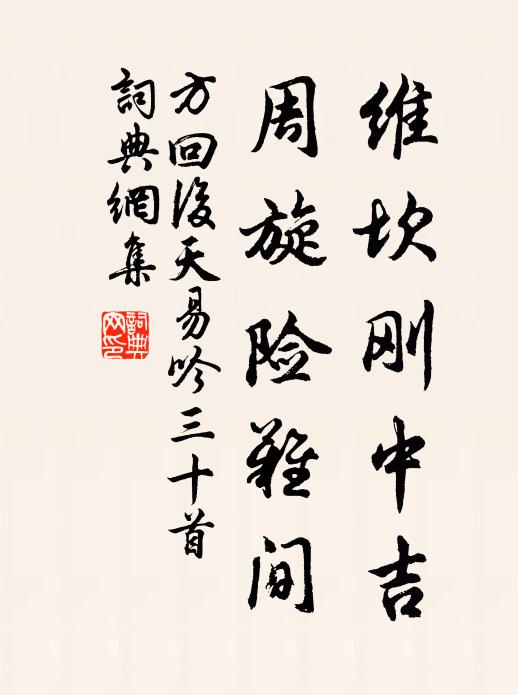 维坎刚中吉
周旋险难间
方回後天易吟三十首
詞典網集
詞典
网印